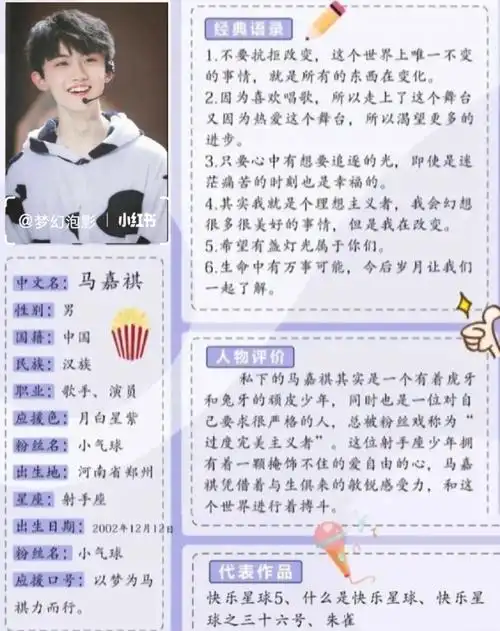 @梦幻泡影 | 小红书
中文名：马嘉祺
性别：男
国籍：中国
民族：汉族
职业：歌手、演员
应援色：月白星紫
粉丝名：小气球
出生地：河南省郑州
星座：射手座
出生日期：2002年12月12日
粉丝名：小气球
应援口号：以梦为马
祺力而行。
经典语录
1.不要抗拒改变，这个世界上唯一不变
的事情，就是所有的东西在变化。
2.因为喜欢唱歌，所以走上了这个舞台
又因为热爱这个舞台，所以渴望更多的
进步。
3.只要心中有想要追逐的光，即使是迷
茫痛苦的时刻也是幸福的。
4.其实我就是个理想主义者，我会幻想
很多很美好的事情，但是我在改变。
5.希望有盏灯光属于你们。
6.生命中有万事可能，今后岁月让我们
一起了解。
人物评价
私下的马嘉祺其实是一个有着虎牙
和兔牙的顽皮少年，同时也是一位对自
己要求很严格的人，总被粉丝戏称为“
过度完美主义者”。这位射手座少年拥
有着一颗掩饰不住的爱自由的心，马嘉
祺凭借着与生俱来的敏锐感受力，和这
个世界进行着搏斗。
代表作品
快乐星球5、什么是快乐星球、快乐星
球之三十六号、朱雀